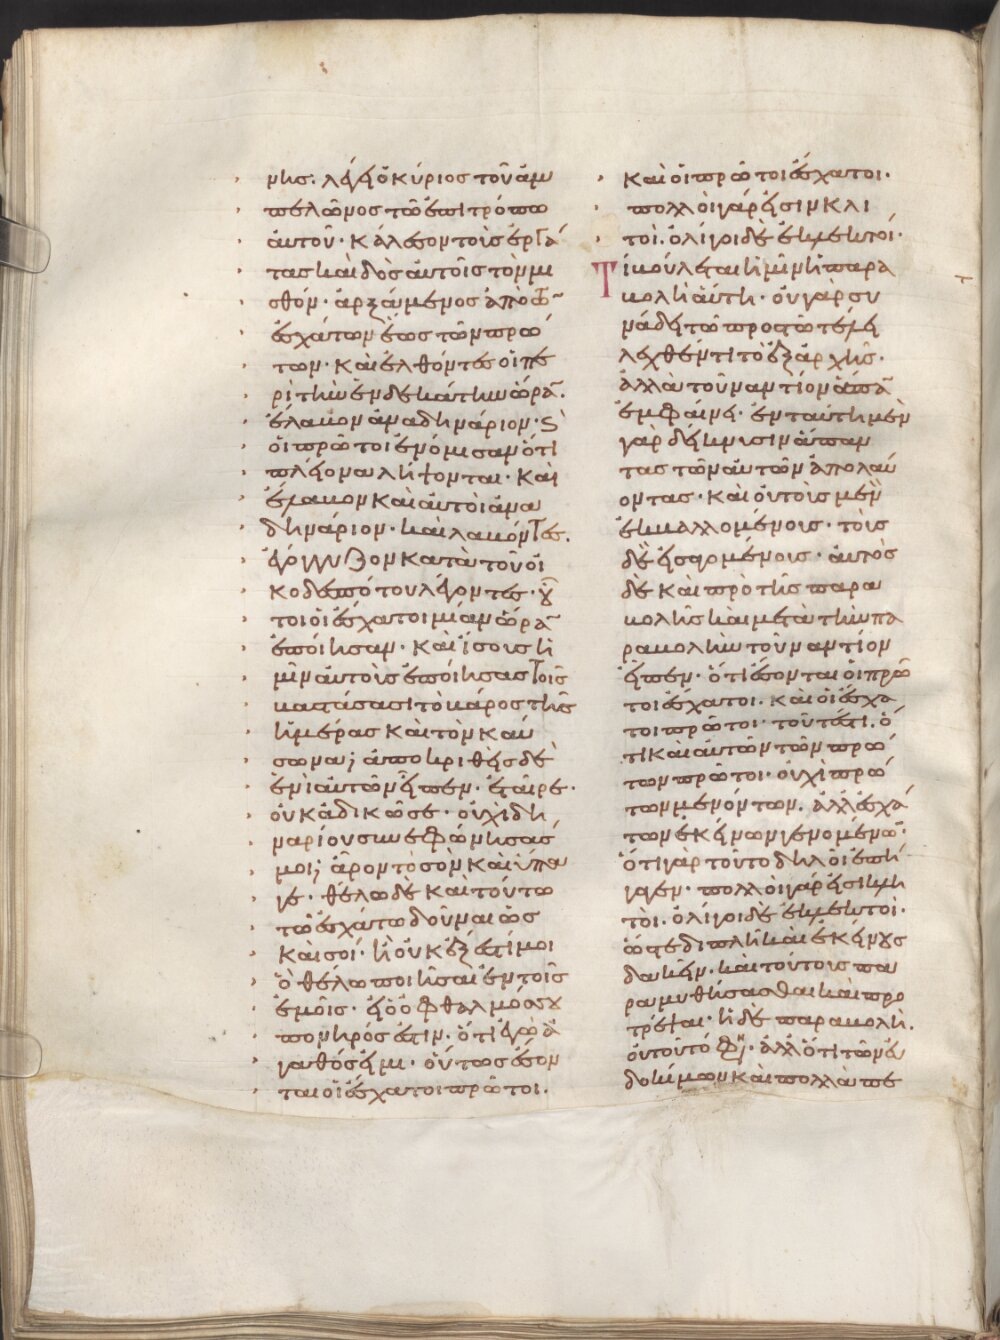 νης. λέγει ὁ κύριος τοῦ ἀμ
πελῶνος τῶ ἐπιτρόπω
ἀυτοῦ· κάλεσον τοὺς ἐργά
τας καὶ δὸς ἀυτοῖς τὸν μι
σθόν· ἀρξάμενος ἀπὸ τῶν
ἐσχάτων ἕως τῶν πρώ
των· καὶ ἐλθόντες οἱ πε
ρὶ τὴν ἑνδεκάτην ὥραν.
ἔλαβον ἀνα δηνάριον· κ
οἱ πρῶτοι ἐνόμισαν ὅτι
πλέονα λήψονται· καὶ
ἔλαβον καὶ ἀυτοὶ ἀνα
δηνάριον· καὶ λαβόντες.
ἐγόγγυζον κατὰ τοῦ οἰ
κοδεσπότου λέγοντες· οὗ
τοι οἱ ἔσχατοι μίαν ὥραν
ἐποίησαν· καὶ ἴσους ἡ
μῖν ἀυτοὺς ἐποίησας τοῖς
βαστάσασι τὸ βάρος τῆς
ἡμέρας καὶ τὸν καύ
σωνα; ἀποκριθεὶς δὲ
ἑνὶ ἀυτῶν εἶπεν· ἑταῖρε·
οὐκ ἀδικῶ σε· οὐχὶ δη
ναρίου συνεφώνησάς
μοι; ἆρον τὸ σὸν καὶ ὕπα
γε· θέλω δὲ καὶ τούτω
τῶ ἐσχάτω δοῦναι ὡς
καὶ σοί· ἢ οὐκ ἔξεστί μοι
ὃ θέλω ποιῆσαι ἐν τοῖς
ἐμοῖς· εἰ ὁ ὀφθαλμός σου
πονηρός ἐστιν· ὅτι ἐγὼ ἀ
γαθός εἰμι· οὕτως ἔσον
ται οἱ ἔσχατοι πρῶτοι.
καὶ οἱ πρῶτοι ἔσχατοι.
πολλοὶ γάρ εἰσιν κλη
τοὶ. ὀλίγοι δὲ ἐκλεκτοί·
Τί βούλεται ἡμῖν ἡ παρα
βολὴ ἁύτη· οὐ γὰρ συ
νάδει τῶ πρὸς τῶ τέλει
λεχθέντι τὸ ἐξαρχῆς·
ἀλλὰ τοὐναντίον ἅπαν
ἐμφαίνει· ἐν ταύτη μὲν
γὰρ δείκνυσιν ἅπαν
τας τῶν ἀυτῶν ἀπολαύ
οντας· καὶ οὐ τοὺς μὲν
ἐκβαλλομένους· τοὺς
δὲ εἰσαγομένους· ἀυτὸς
δὲ καὶ πρὸ τῆς παρα
βολῆς καὶ μετὰ τὴν πα
ραβολὴν τοὐναντίον
εἶπεν· ὅτι ἔσονται οἱ πρῶ
τοι ἔσχατοι. καὶ οἱ ἔσχα
τοι πρῶτοι· τουτέστι. ὅ
τι καὶ αυτῶν τῶν πρώ
των πρῶτοι· οὐχὶ πρώ
των μενόντων. ἀλλ' ἐσχά
των ἐκείνων γενομένων·
ὅτι γὰρ τοῦτο δηλοῖ ἐπή
γαγεν· πολλοὶ γάρ εἰσι κλη
τοὶ. ὀλίγοι δὲ ἐκλεκτοί·
ὥστε διπλῆ καὶ ἐκείνους
δακεῖν. καὶ τούτους πα
ραμυθήσασθαι καὶ προ
τρέψαι· ἡ δὲ παραβολὴ.
οὐ τοῦτό φησι· ἀλλ' ὅτι τῶν εὐ
δοκίμων καὶ πολλὰ πε